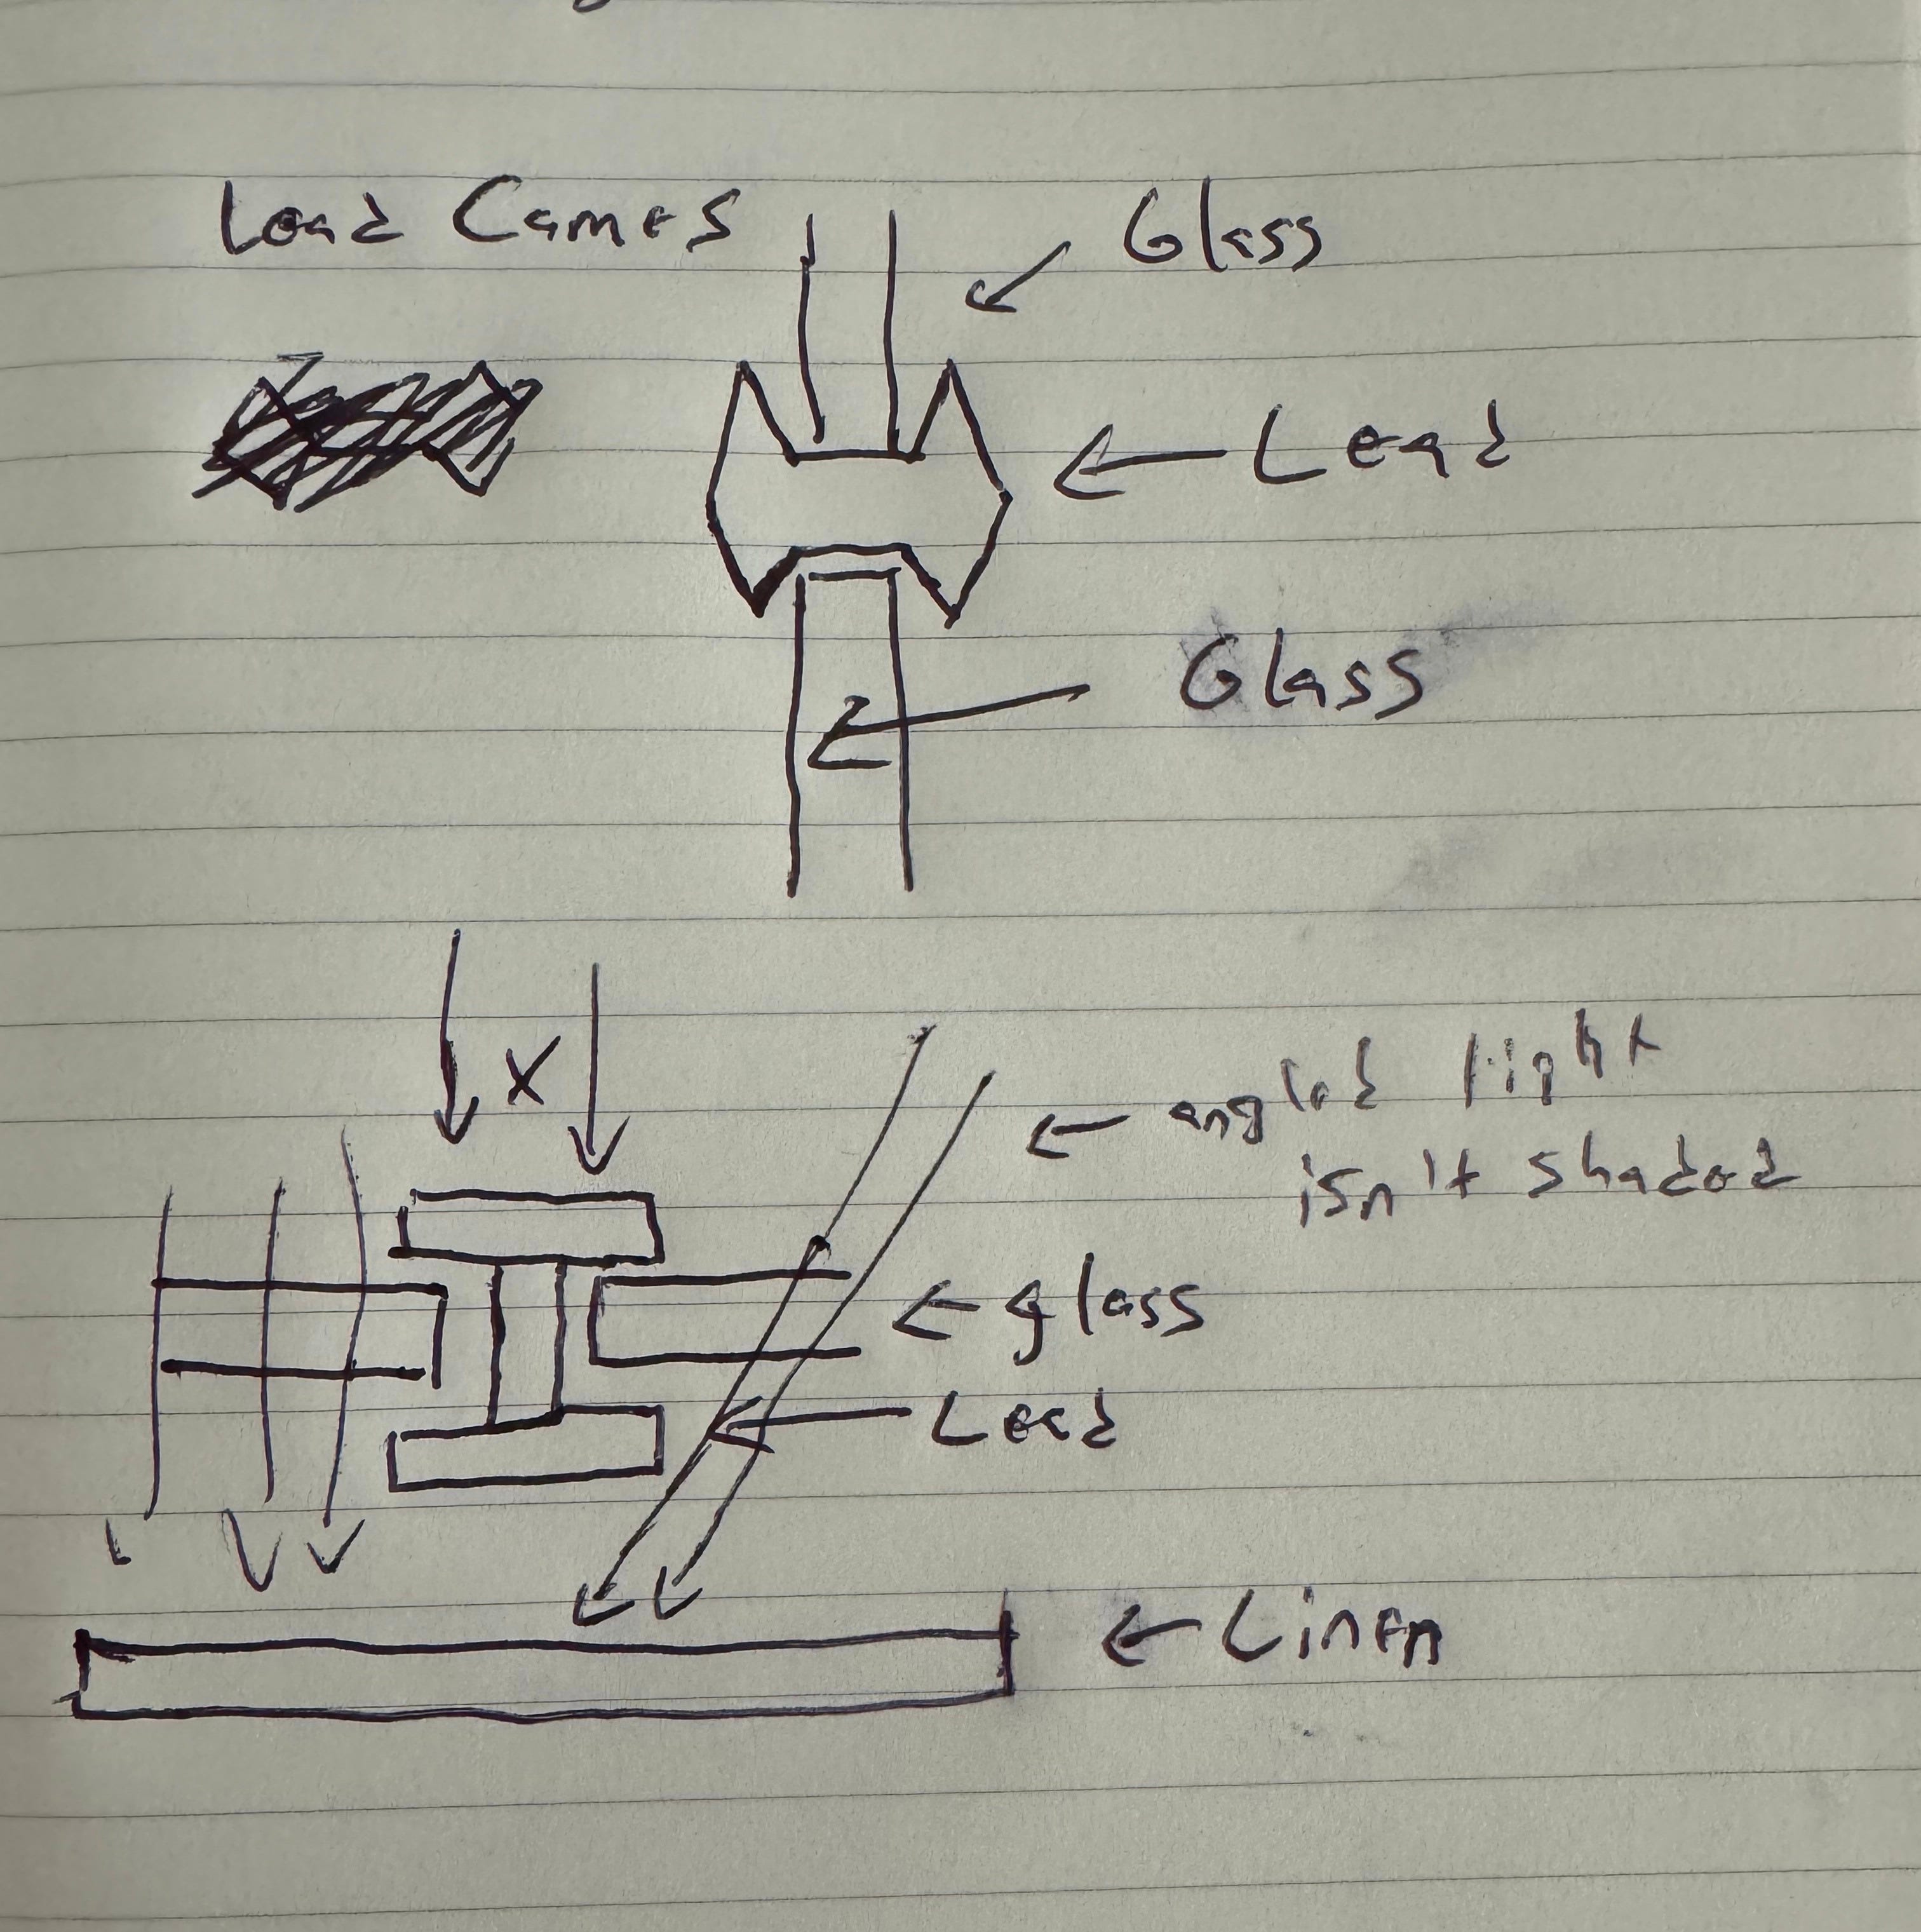 Lead Cames
Glass
Lead
Glass
X
angled light
isn't shaded
glass
Lead
Linen